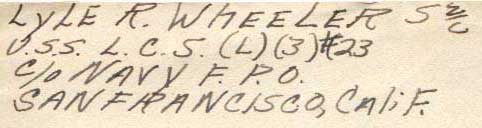 LyLE R. WHEELER S 2/c
U.S.S. L.C.S. (L)(3)#23
c/o NAVY F.P.O.
SANFRANCISCO, CaliF.